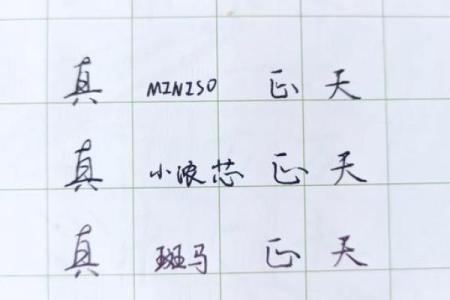 真 MINISO 正 天
真 小浪芯 正 天
真 斑马 正 天